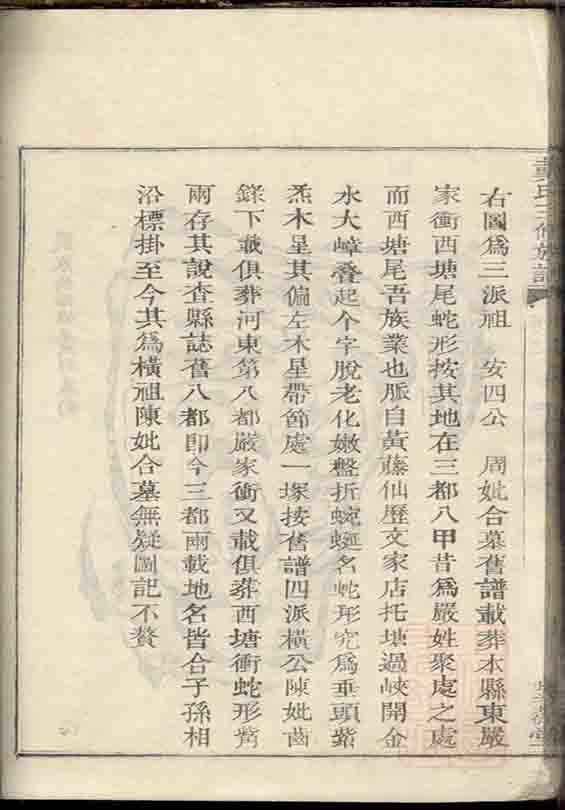 右圖爲三派祖　安四公　周妣合墓舊譜載葬本縣東嚴
家衝西塘尾蛇形按其地在三都八甲昔爲嚴姓聚處之處
而西塘尾吾族業也脈自黃藤仙歷文家店托塘過峽開金
水大嶂疊起个字脫老化嫩盤折蜿蜒名蛇形究爲垂頭紫
炁木星其偏左木星帶節處一塚按舊譜四派橫公陳妣齒
錄下載俱葬河東第八都嚴家衝又載俱葬西塘衝蛇形
兩存其說查縣誌舊八都卽今三都兩載地名皆合子孫相
沿標掛至今其爲橫祖陳妣合墓無疑圖記不贅
氏三修族譜